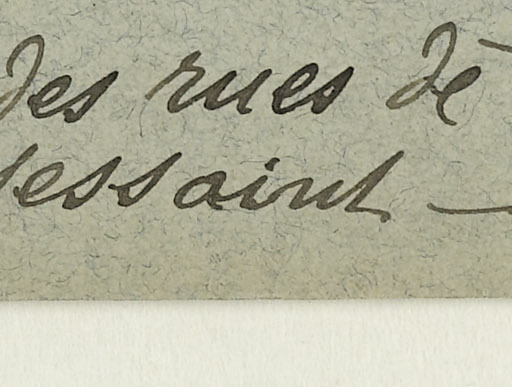 des rues de
essaint —